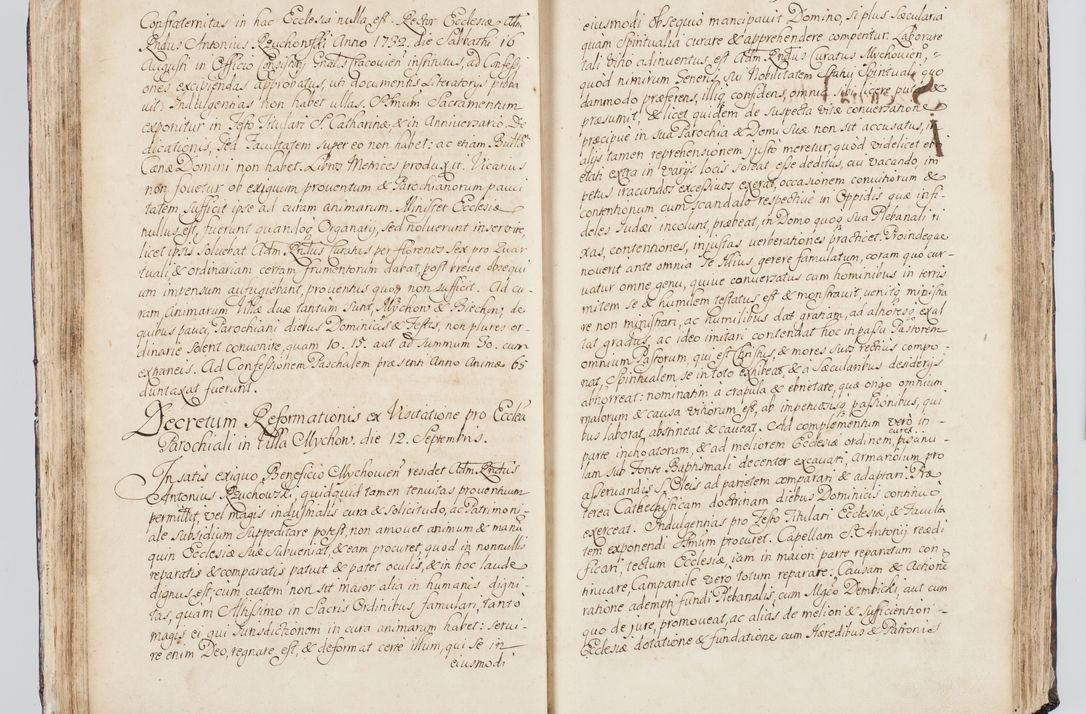 Confraternitas in hac Ecclesia nulla est. Rector Ecclesiæ Adm.
Rndus Antonius Rzuchowski Anno 1732. die Sabbathi 16
Augusti in Officio Consistory Gnalis Cracovien institutus, ad Confessi
ones excipiendas approbatus, uti documentis Literatorys proba
vit. Indulgentias non habet ullas. SSmum Sacramentum
exponitur in Festo Titulari S. Catharinæ, & in Anniversario De
dicationis, sed Facultatem super eo non habet: ac etiam Bullæ
Cænæ Domini non habet. Libros Metrices produxit. Vicarius
non fovetur ob exiguum proventum & Parochianorum pauci
tatem sufficit ipse ad curam animarum. Minister Ecclesiæ
nullus est, fuerunt quandoq Organarij, sed noluerunt inservire,
licet ipsis solvebat Adm. Rndus Curatus per florenos sex pro Quar
tuali, & ordinariam certam frumentorum dabat, post breve obsequi
um impensum aufugiebant, proventus quoq non sufficit. Ad cu-
ram Animarum Villæ duæ tantum sunt, Mychow & Biechow, de
quibus pauci, Parochiani diebus Dominicis & Festis, non plures or
dinarie solent convenite, quam 10. 15. aut ad summum 30. cum
extraneis. Ad Confessionem Paschalem præsenti Anno Animæ 65
duntaxat fuerunt.
Decretum Reformationis ex Visitatione pro Ecclea
Parochiali in Villa Mychow. die 12. Septembris.
In satis exiguo Beneficio Mychovien residet Adm. Rndus
Antonius Rzuchowski, quidquid tamen tenuitas proventuum
permittit, vel magis industrialis cura & solicitudo, ac Patrimoni-
ale subsidium suppeditare potest, non amovet animum & manu
quin Ecclesiæ suæ subveniat, & eam procuret, quod in nonnullis
reparatis & comparatis patuit & patet oculis, & in hoc laude
dignus est; cum autem non sit maior alia in humanis digni-
tas, quam Altissimo in Sacris Ordinibus famulari, tanto
magis ei qui Iurisdictionem in cura animarum habet: servi-
re enim Deo, regnare est, & deformat certe illum, qui se in
eiusmodi
eiusmodi obsequio mancipavit Domino, si plus sæcularia
quam spiritualia curare & apprehendere compertur. Laborare
tali vitio adinventus est Adm. Rndus Curatus Mychovien,
quod nimirum Generis, sui Nobilitatem statui spirituali quo
dammodo præferens, illiq confidens, omnia sibi licere putet &
præsumit, & licet quidem de suspecta vitæ conversatione
præcipue in sua Parochia & Domi suæ non sit accusatus,
alijs tamen reprehensionem justo meretur, quod videlicet
etati extra in varijs locis soleat esse deditus, cui vacando, im
petus iracundos excessivos exerat, occasionem convitiorum &
contentionum cum scandalo respective in Oppidis quæ infi-
deles Iudæi incolunt, præbeat, in Domo quoq sua Plebanali ri
xas, contentiones, injustas verberationes practicet. Proindeque
noverit ante omnia se Illius gerere famulatum, coram quo cur-
vatur omne genu, quive conversatus cum hominibus in terris
mitem se & humilem testatus est & monstravit, venit ministra
re non ministrari, ac humilibus dat gratiam, ad altiores exal
tat gradus, ac ideo imitari contendat hoc in passu Pastorem
omnium Pastorum, qui est Christus, & mores suos rectius compo-
nat, spiritualem se in toto exhibeat, & a sæcularibus desiderijs
abhorreat: nominatim a crapula & ebrietate, quæ origo omnium
malorum & causa vitiorum est, ab impetuosis passionibus, qui
bus laborat, abstineat & caveat. Ad complementum vero in-
parte inchoatorum, & ad meliorem Ecclesiæ ordinem, piscinu-
lam sub Fonte Baptismali decenter excavari curet, Armariolum pro
asservandis S. Oleis ad parietem comparari & adaptari. Præ
terea Cathechisticam doctrinam diebus Dominicis continuo
exerceat. Indulgentias pro Festo Titulari Ecclesiæ, & Faculta
tem exponendi SSmum procuret. Capellam S. Antonij reædi
ficari, tectum Ecclesiæ, iam in maiori parte reparatum con
tinuare, Campanile vero totum reparare: Causam & Actione
ratione adempti fundi Plebanalis, cum Mgco Dembicki, aut cum
quo de jure, promoveat, ac alias de meliori & sufficientiori
Ecclesiæ dotatione & fundatione cum Hæredibus & Patronis